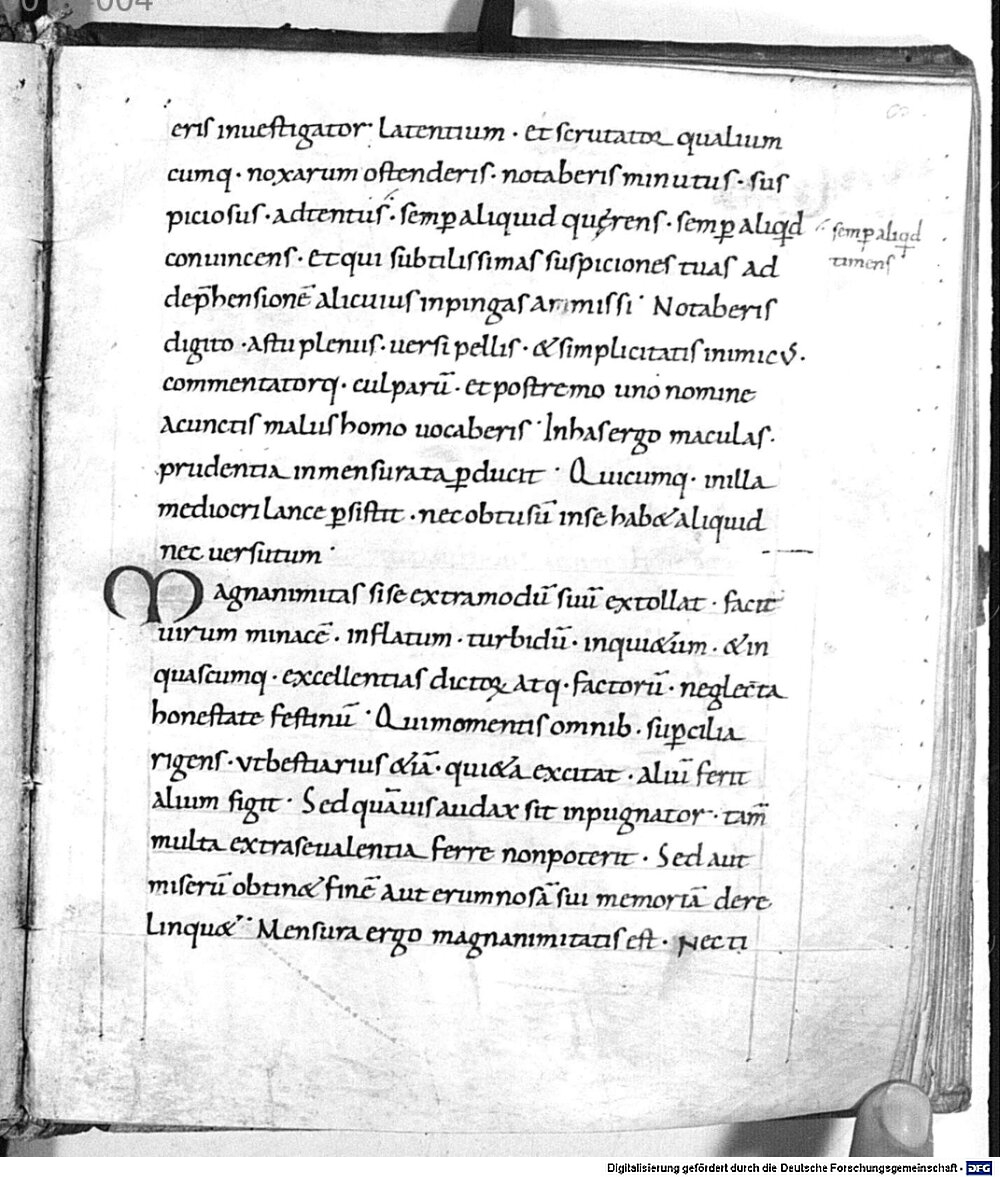 eris inuestigator latentium · et scrutatoꝝ qualium
cumq · noxarum ostenderis · notaberis minutus · sus
piciosus · adtentus · semꝑ aliquid quęrens · semꝑ aliqd
semꝑ aliqd
timens
conuincens · Et qui subtilissimas suspiciones tuas ad
dep̄hensionē alicuius inpingas ammissi · Notaberis
digito · astu plenus · uersi pellis · & simplicitatis inimicus ·
commentatorq · culparū · et postremo uno nomine
acunctis malus homo uocaberis · Inhas ergo maculas ·
prudentia inmensurata ꝑducit · Quicumq · inilla
mediocri lance ꝑsistit · nec obtusū inse hab& aliquid
nec uersutum ·
Magnanimitas sise extra modū suū extollat · facit
uirum minacē · inflatum · turbidū · inqui&um · & in
quascumq · excellentias dictoꝝ atq · factorū · neglecta
honestate festinū · Qui momentis omnib · suꝑcilia
rigens · ut bestiarius &iā · qui&a excitat · aliū ferit
alium figit · Sed quāuis audax sit inpugnator · tam̄
multa extra se ualentia ferre non poterit · Sed aut
miserū obtin& finē aut erumnosā sui memoriā dere
linqu& · Mensura ergo magnanimitatis est · Nec ti
Digitalisierung gefördert durch die Deutsche Forschungsgemeinschaft · DFG